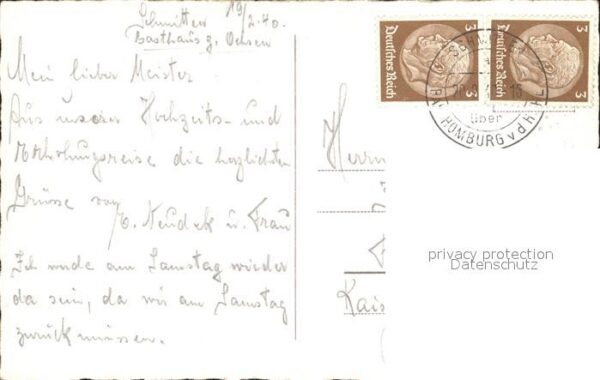 Schmitten 19/2.40.
Gasthaus z. Ochsen
Mein lieber Meister
Aus unserer Hochzeits- und
Erholungsreise die herzlichsten
Grüsse von
Neudek u. Frau
Ich werde am Samstag wieder
da sein, da wir am Samstag
zurück müssen.
Deutsches Reich
3
3
Deutsches Reich
3
3
über
HOMBURG v d H
Herrn
Kais
privacy protection
Datenschutz